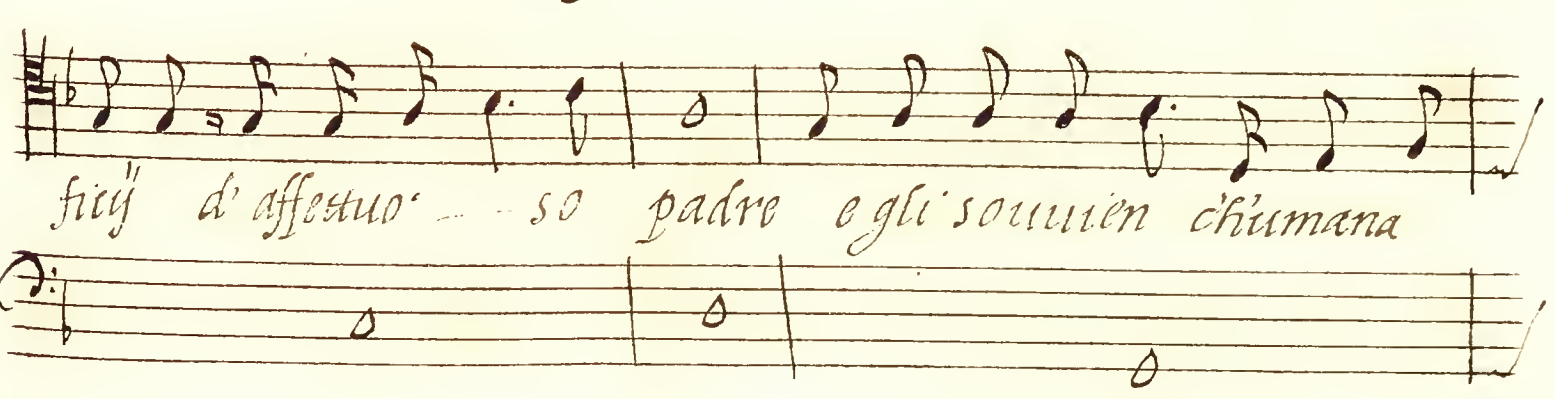 ficij d' affettuo- - - so padre e gli souuien ch'humana